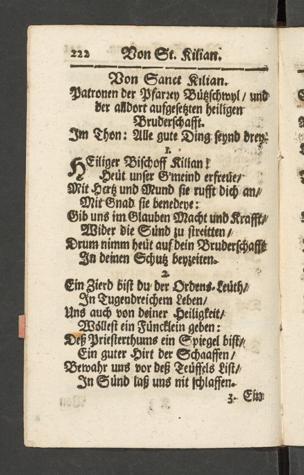 222 Von St. Kilian.
Von Sanct Kilian.
Patronen der Pfarrey Bützschwyl / und
der alldort aufgesetzten heiligen
Bruderschafft.
Im Thon: Alle gute Ding seynd drey.
1.
HEiliger Bischoff Kilian!
Heüt unser G'meind erfreüe/
Mit Hertz und Mund sie rufft dich an/
Mit Gnad sie benedeye:
Gib uns im Glauben Macht und Krafft/
Wider die Sünd zu streitten/
Drum nimm heüt auf dein Bruderschafft
In deinen Schutz beyzeiten.
2.
Ein Zierd bist du der Ordens-Leüth/
In Tugendreichem Leben/
Uns auch von deiner Heiligkeit/
Wöllest ein Füncklein geben:
Deß Priesterthums ein Spiegel bist/
Ein guter Hirt der Schaaffen/
Bewahr uns vor deß Teüffels List/
In Sünd laß uns nit schlaffen.
3. Ein